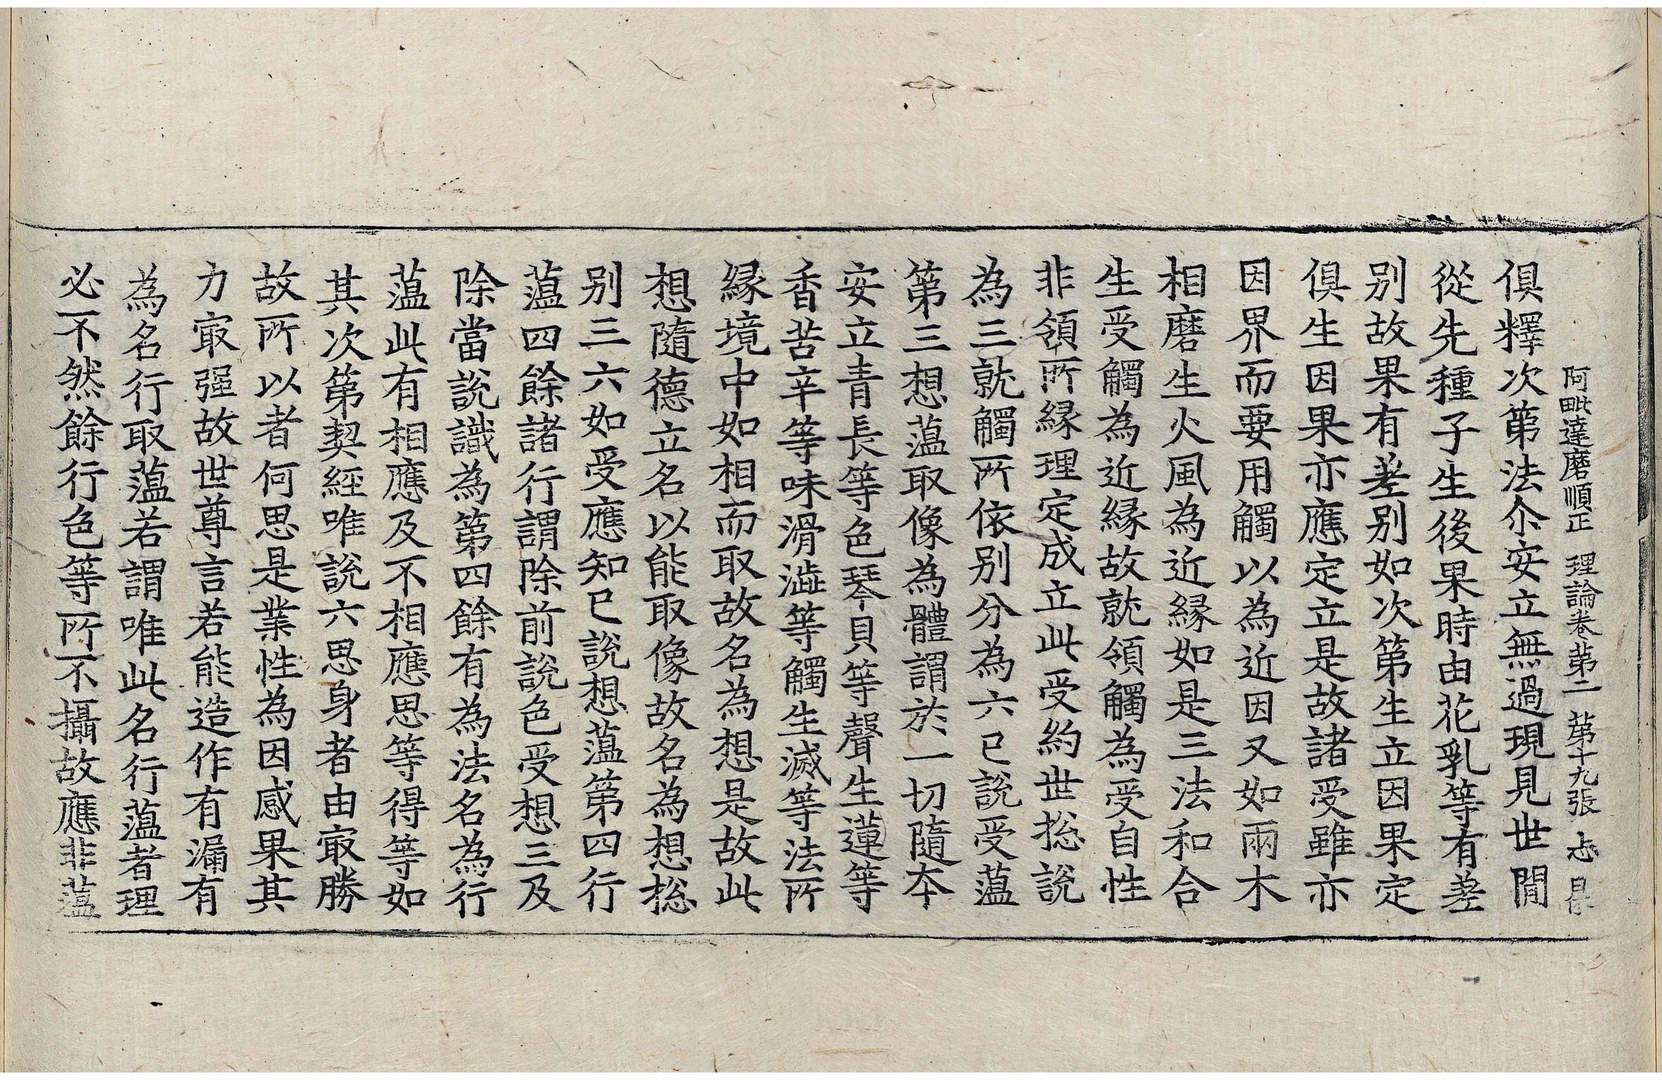 阿毗達磨順正理論卷第二 第十九張 志
俱釋次第法尒安立無過現見世間
從先種子生後果時由花乳等有差
別故果有差別如次第生立因果定
俱生因果亦應定立是故諸受雖亦
因界而要用觸以為近因又如兩木
相磨生火風為近緣如是三法和合
生受觸為近緣故就領觸為受自性
非領所緣理定成立此受約世揔說
為三就觸所依別分為六已說受薀
第三想薀取像為體謂於一切隨本
安立青長等色琴貝等聲生蓮等
香苦辛等味滑澁等觸生滅等法所
緣境中如相而取故名為想是故此
想隨德立名以能取像故名為想揔
別三六如受應知已說想薀第四行
薀四餘諸行謂除前說色受想三及
除當說識為第四餘有為法名為行
薀此有相應及不相應思等得等如
其次第契經唯說六思身者由㝡勝
故所以者何思是業性為因感果其
力㝡强故世尊言若能造作有漏有
為名行取薀若謂唯此名行薀者理
必不然餘行色等所不攝故應非薀